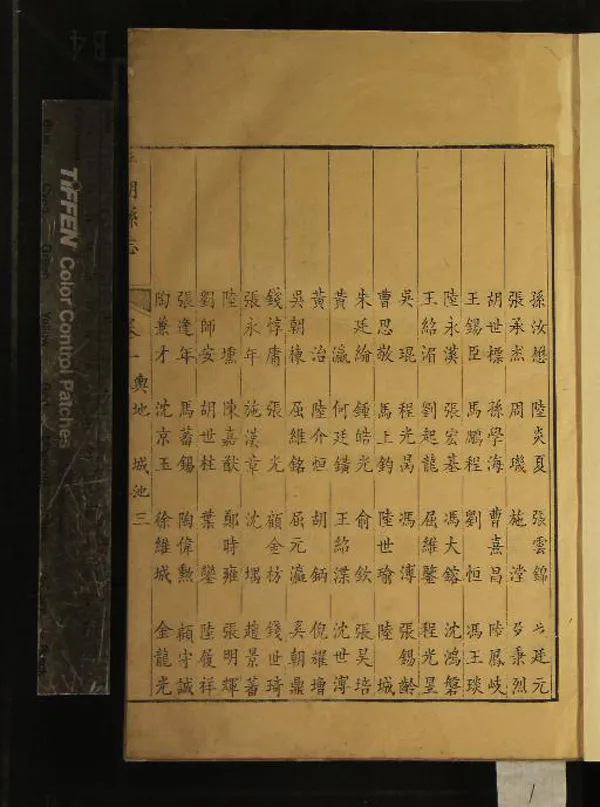 孫汝懋 陸炎夏 張雲錦 廷元
張承杰 周璣 施瀅 秉烈
胡世標 孫學海 曹熹昌 陸鳳岐
王錫臣 馬鵬程 劉恒 馮王琰
陸永漢 張宏基 馮大鎔 沈鴻磐
王紹湄 劉起龍 屈維鑒 程光昱
吳琨 程光昺 馮溥 張錫齡
曹思敬 馬上鈞 陸世瑜 陸城
朱廷綸 鍾皓光 俞欽 張吴培
黃瀛 何廷鐄 王紹渫 沈世溥
黃治 陸介恒 胡鈵 倪耀增
吳朝棟 屈維銘 屈元瀛 奚朝鼎
錢惇庸 張光 顧金枋 錢世琦
張永年 施漢章 沈堣 趙景蕃
陸壎 陳嘉猷 鄭時雍 張明輝
劉師安 胡世柱 葉鑾 陸履祥
張達年 馬蕃錫 陶偉勲 顧守誠
陶兼才 沈京玉 徐維城 金龍光
湖縣志 卷一 輿地 城池 三
TIFFEN Color Control Patches
B4
1